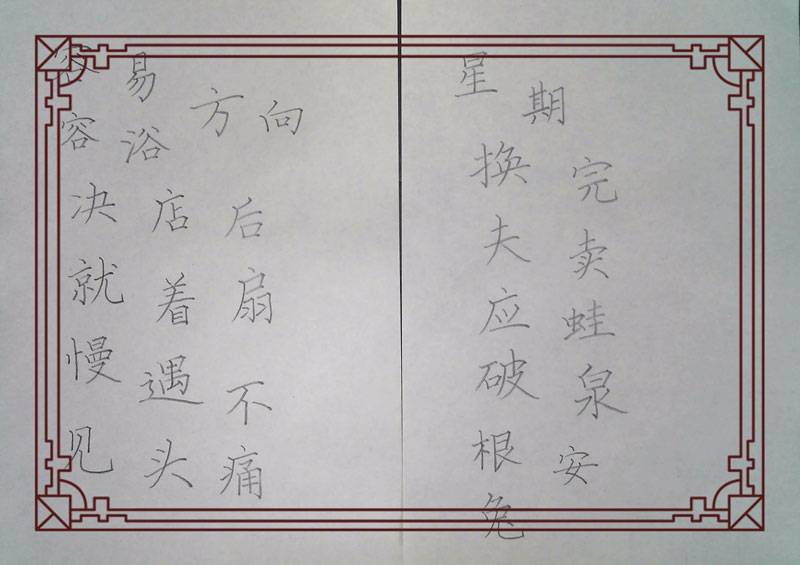 容易 星期
容浴方向 换完
决店后 夫卖
就着扇 应蛙
慢遇不 破泉
见头痛 根安
兔